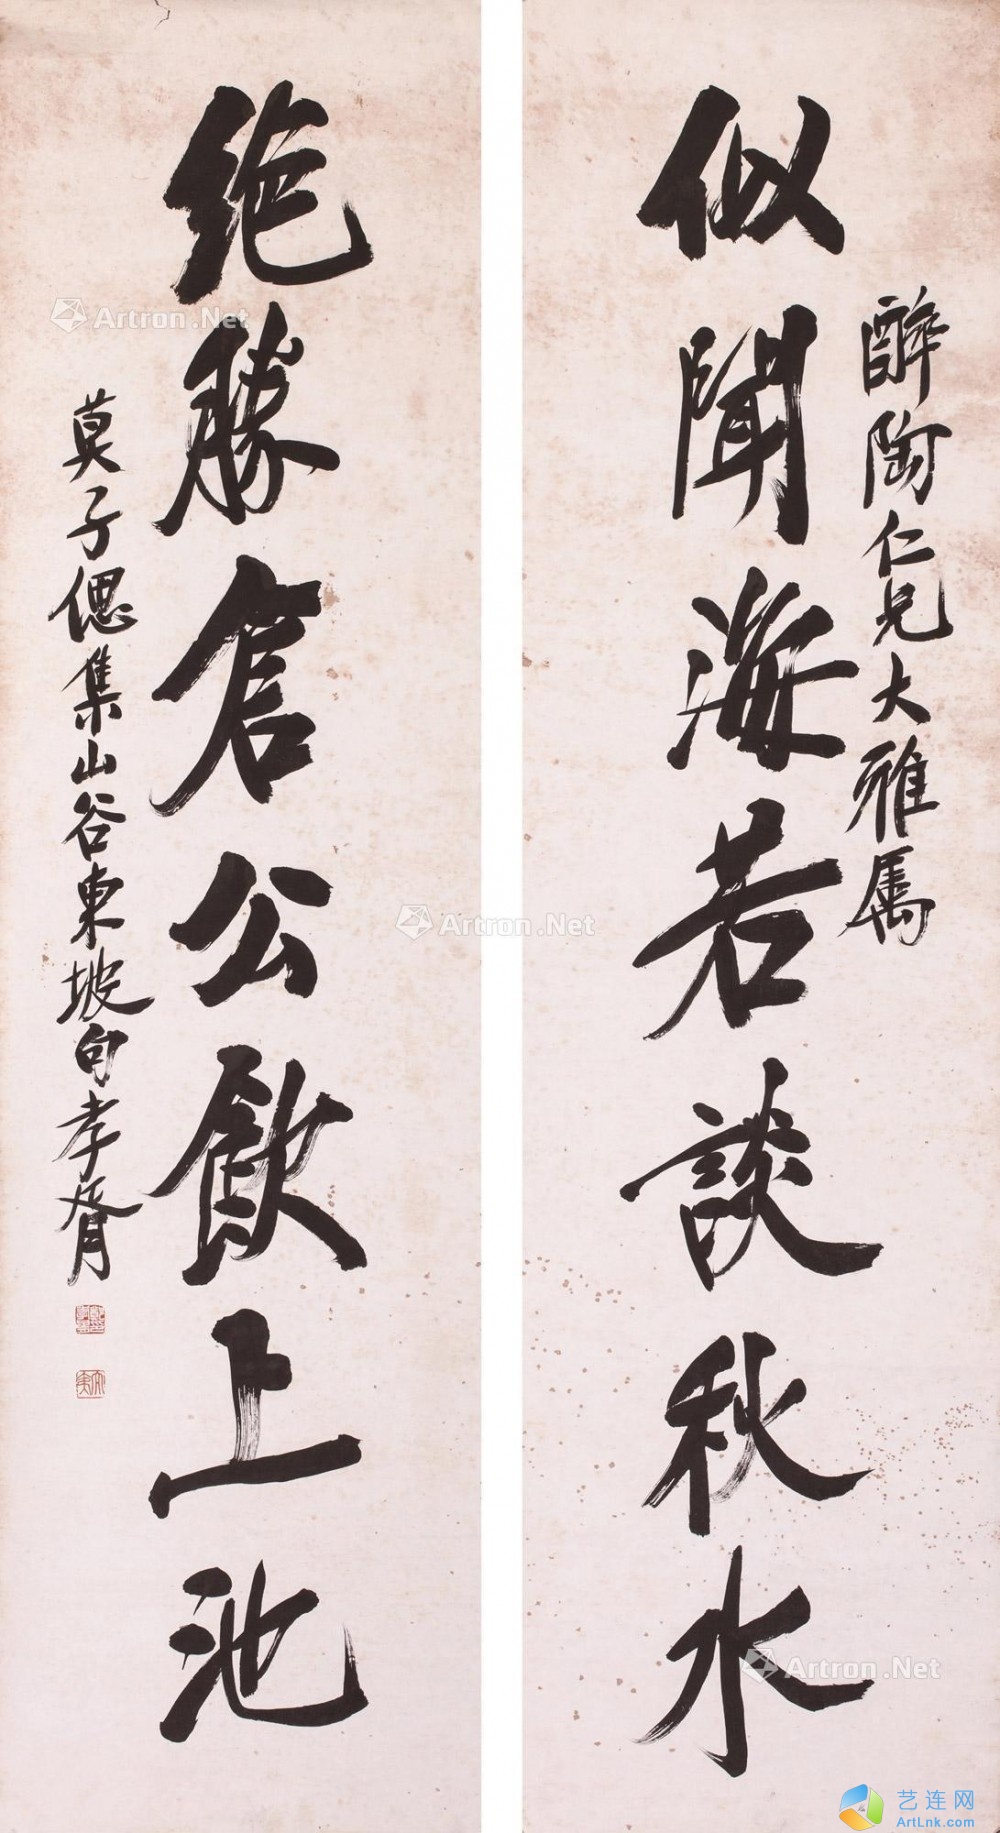 醉陶仁兄大雅属
似聞海若談秋水
絶勝倉公飲上池
莫子偲集山谷東坡句孝胥
Artron.Net
Artron.Net
Artron.Net
艺连网
ArtLnk.com